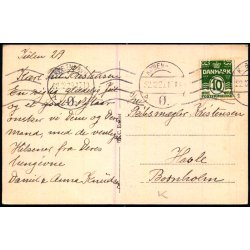 Julen 29
Kære Fru Kristensen
En rigtig glædelig Jul
og et godt Nytaar
ønsker vi Dem og Deres
Mand med de venligste
Hilsener fra Deres
hengivne
Daniel & Anna Knudsen
DANMARK
10
Ø.
Ø.
Kristensen
Hasle
Bornholm